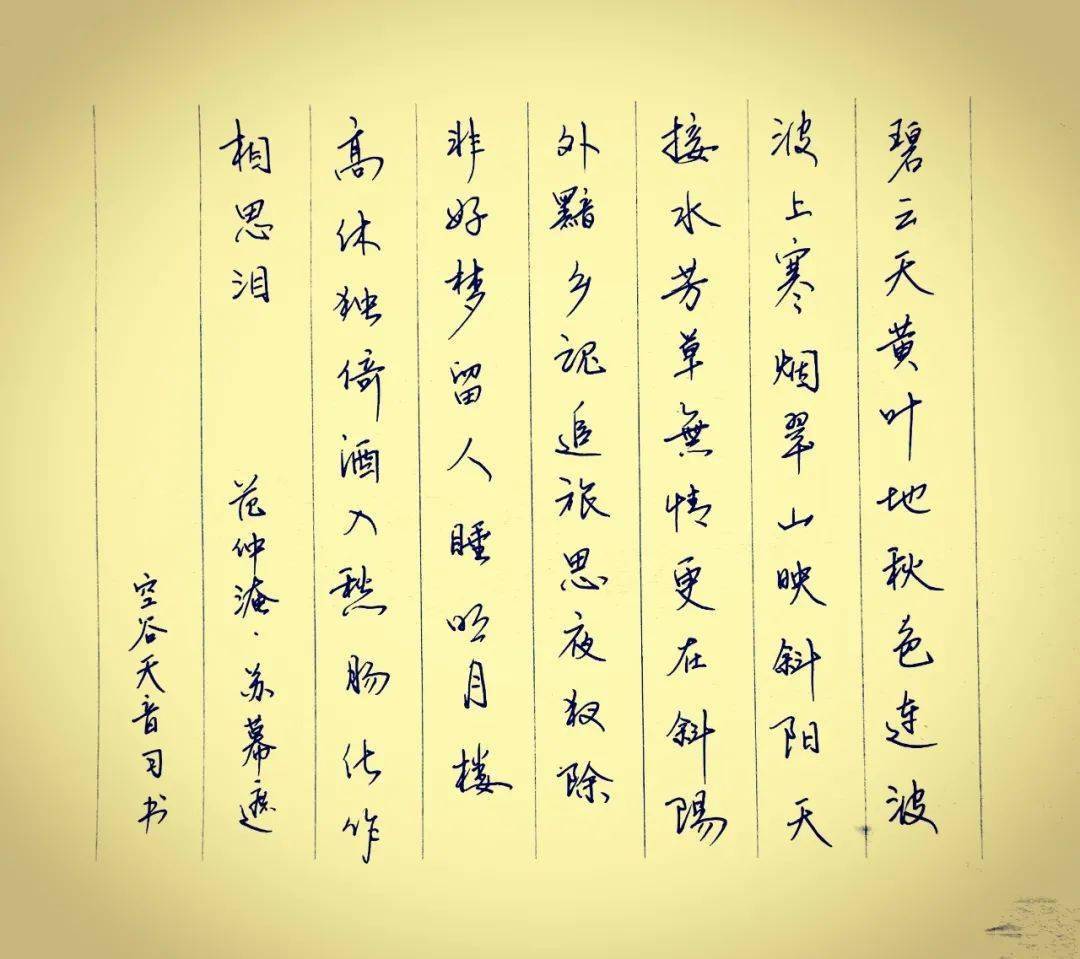 碧云天黄叶地秋色连波
波上寒烟翠山映斜阳天
接水芳草無情更在斜陽
外黯乡魂追旅思夜夜除
非好梦留人睡明月楼
高休独倚酒入愁肠化作
相思泪 范仲淹·苏幕遮
空谷天音习书